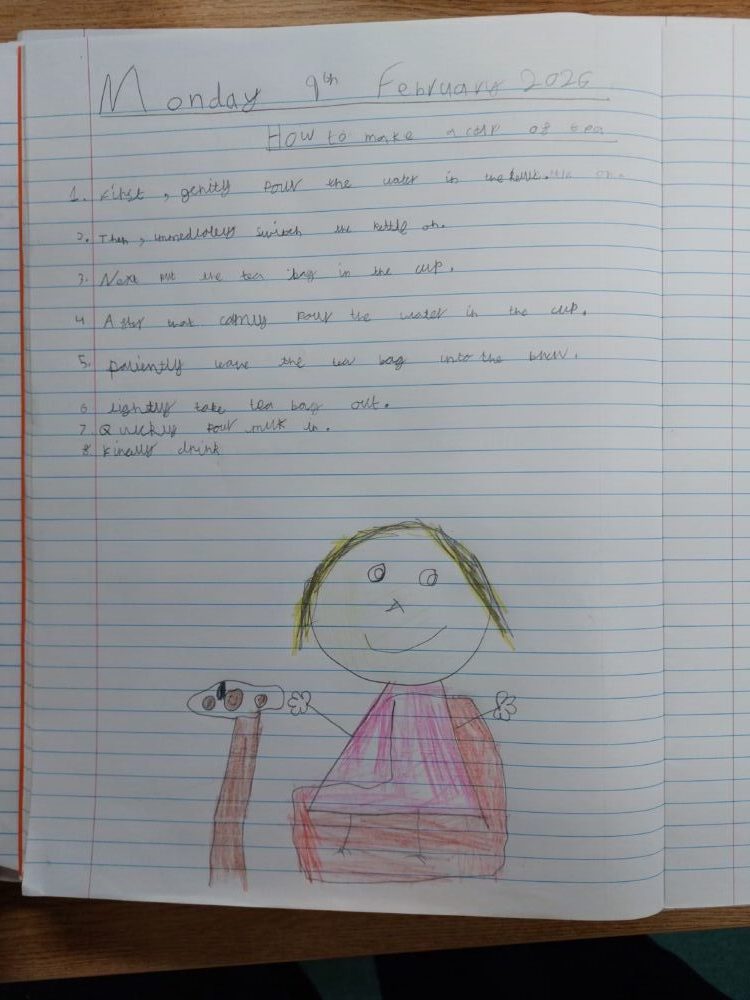 Monday 9th February 2026
How to make a cup of tea
1. First, gently pour the water in the kettle.
2. Then, immedletely switch the kettle on.
3. Next put the tea bag in the cup.
4 After that calmly pour the water in the cup.
5. patiently leave the tea bag into the brew.
6 lightly take tea bag out.
7 Quickly pour milk in.
8 Finally drink